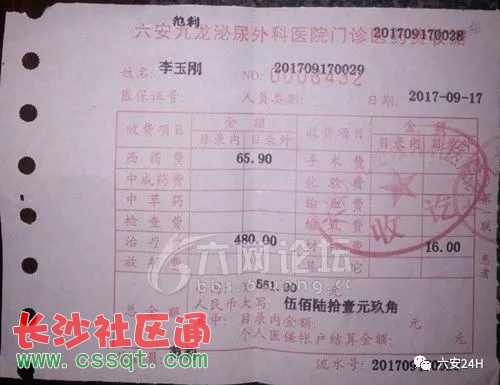 范利
六安九龙泌尿外科医院门诊医药费收据
201709170028
姓名: 李玉刚 NO: 201709170029
0008432
医保证号: 人员类别: 日期: 2017-09-17
收费项目 金额 收费项目 金额
目录内 目录外 目录内 目录外
西药费 65.90 手术费
中成药费 化验费
中草药 输血费
检查费
治疗 480.00 16.00
放射费 其它
收讫
第一联
患者
六网论坛
bbs.
561.90 元
总金额 人民币大写: 伍佰陆拾壹元玖角
中: 目录内金额: 元
个人医保帐户结算金额: 元
长沙社区通
www.cssqt.com
流水号: 2017091700
六安24H